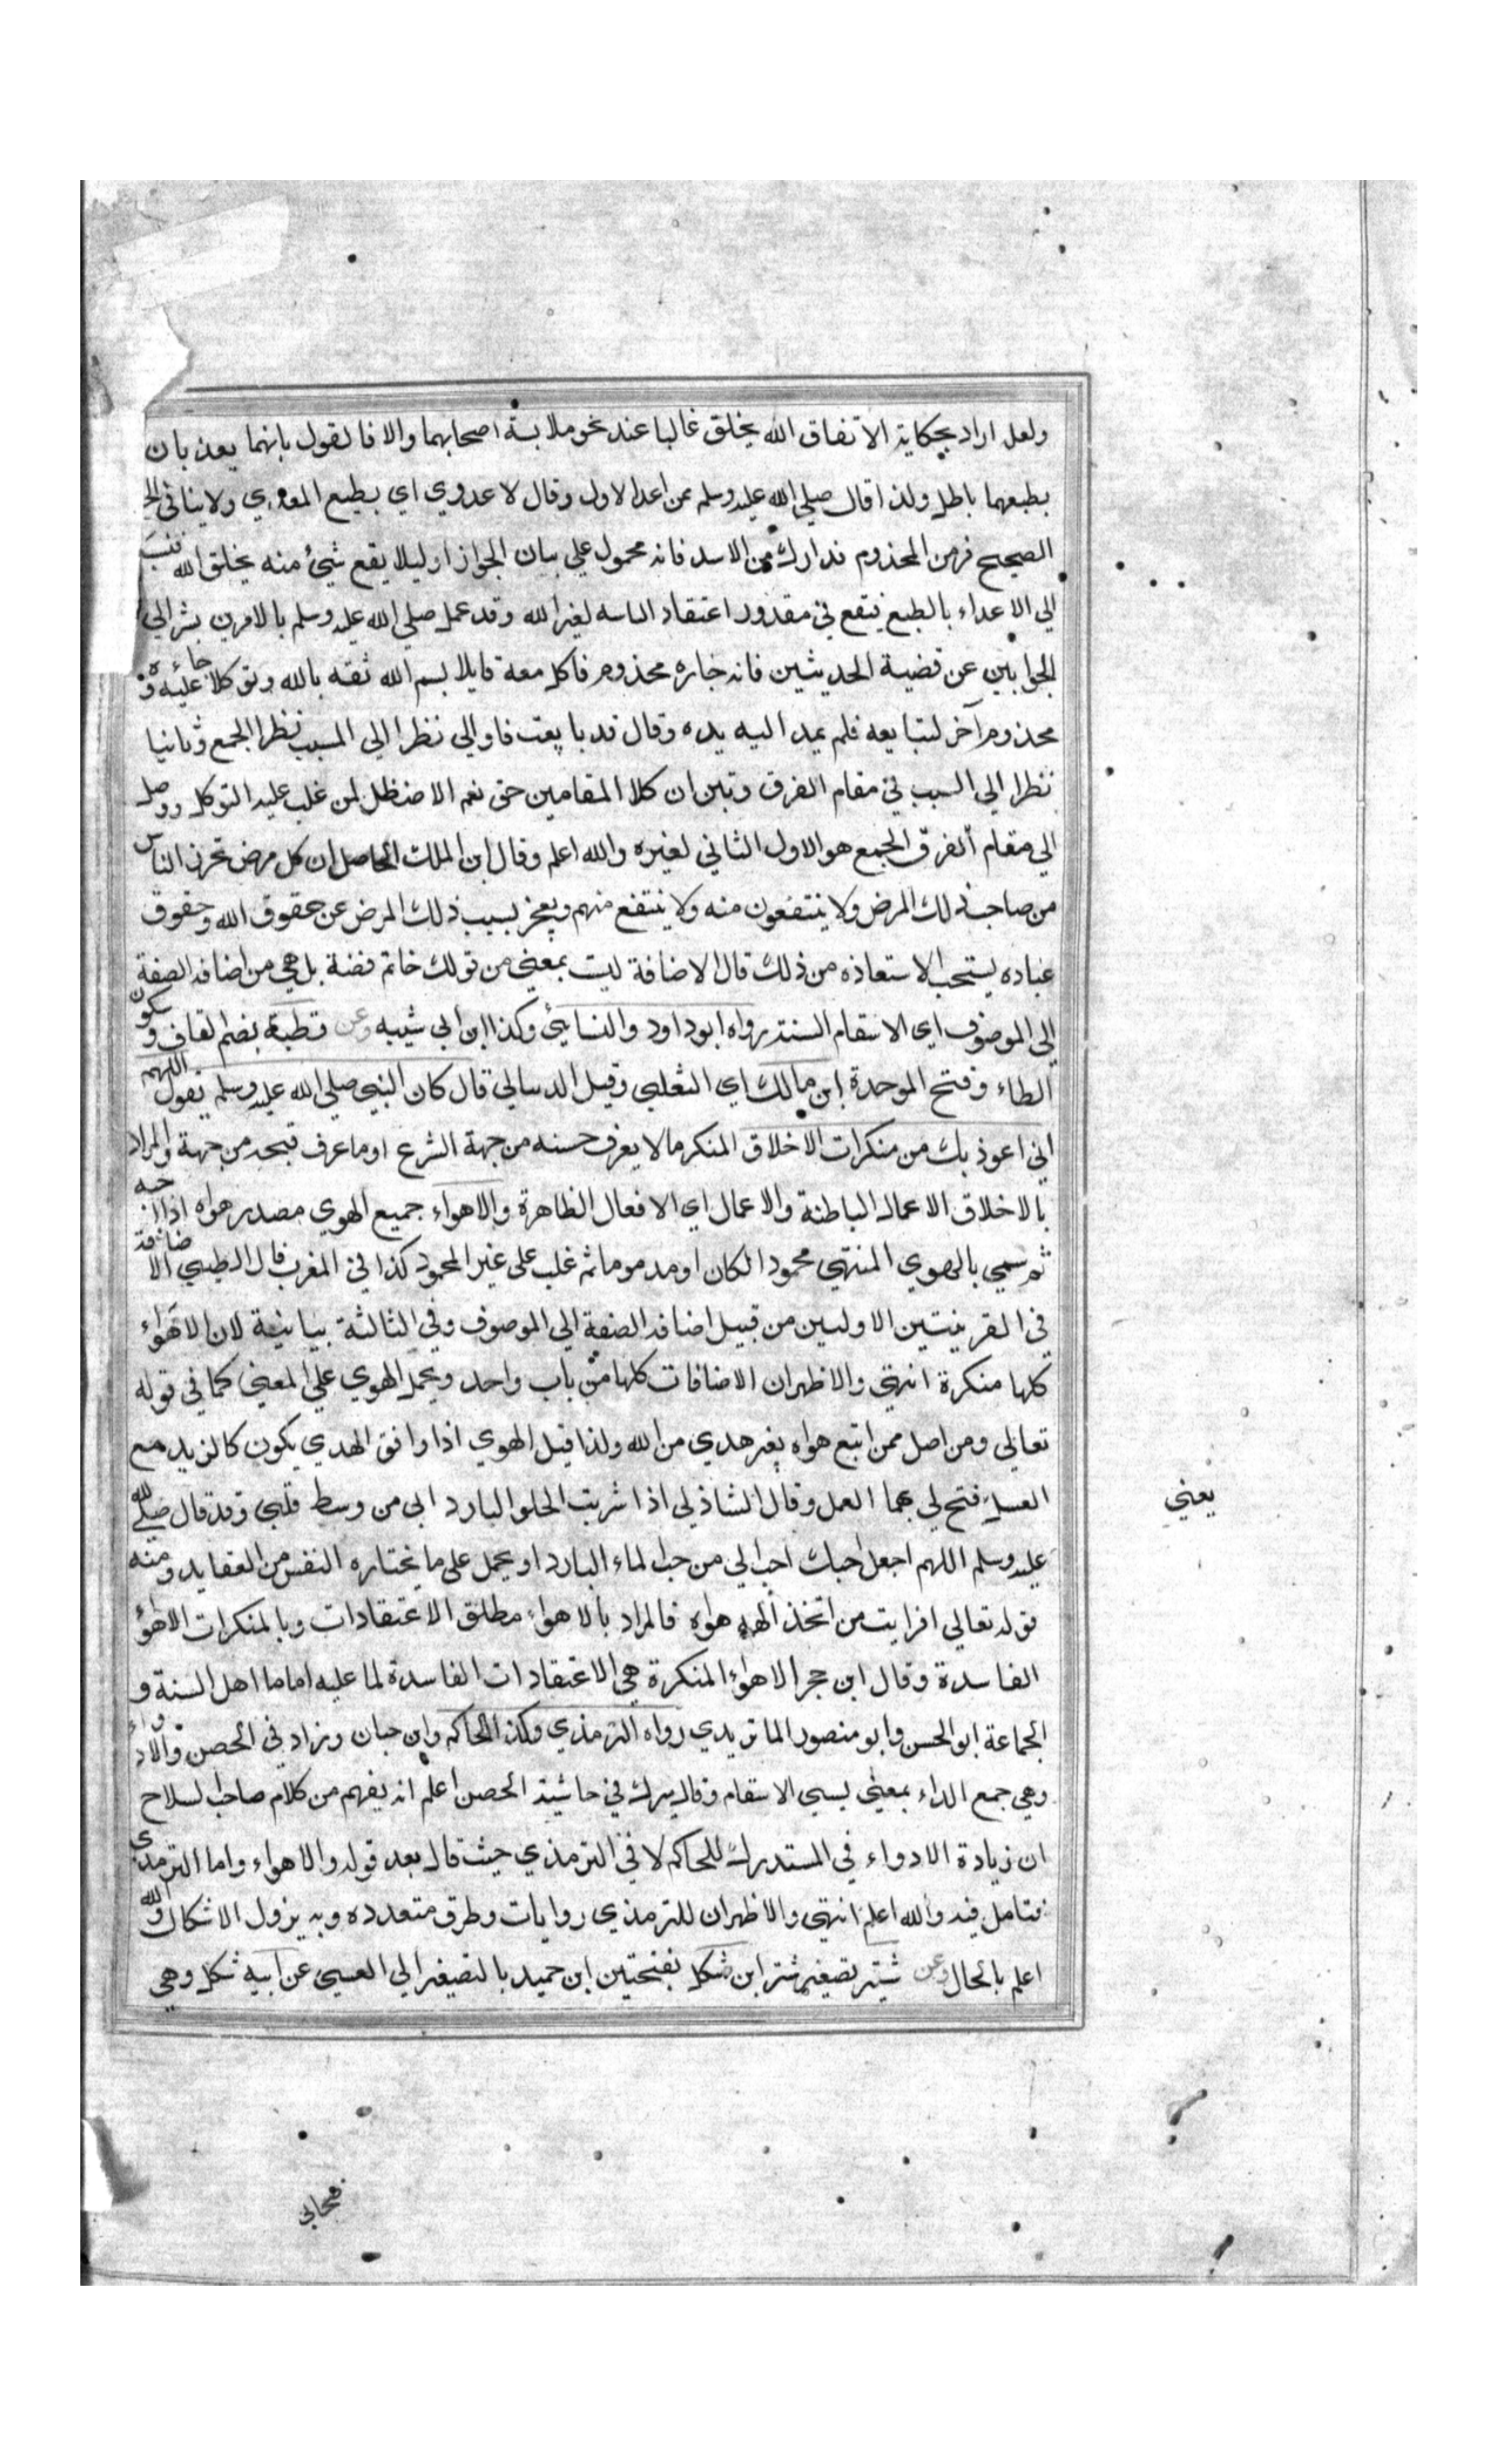 ولعل اراد بحكاية الاتفاق الله يخلق غالبا عند نحو ملابسة اصحابهما والا فالقول بانهما يعديان
بطبعهما باطل ولذا قال صلي الله عليه وسلم من اعدا الاول وقال لا عدوي اي بطبع المعدي ولا ينافي
الصحيح فر من المجذوم فرارك من الاسد فانه محمول علي بيان الجواز او ليلا يقع شئ منه بخلق الله فينسب
الي الاعداء بالطبع فيقع في مقدور اعتقاد التاسه لغير الله وقد عمل صلي الله عليه وسلم بالامرين يشر الي
الجوابين عن قضية الحديثين فانه جاره مجذوم فاكل معه قايلا بسم الله ثقه بالله وتوكلا عليه و جاءه
مجذوم آخر لتبايعه فلم يمد اليه يده وقال قد بايعت فاولي نظرا الي المسبب نظرا الجمع وثانيا
نظرا الي السبب في مقام الفرق وتبين ان كلا المقامين حق نعم الافضل لمن غلب عليه التوكل ووصل
الي مقام الفرق الجمع هو الاول الثاني لغيره والله اعلم وقال ابن الملك الحاصل ان كل مرض تحرز الناس
من صاحب ذلك المرض ولا ينتفعون منه ولا ينتفع منهم ويعجز بسبب ذلك المرض عن حقوق الله وحقوق
عباده يستحب الاستعاذه من ذلك قال الاضافة ليت بمعني من قولك خاتم فضة بل هي من اضافة الصفة
الي الموصوف اي الاسقام السئة رواه ابو داود والنسايئ وكذا ابن ابي شيبه وعن قطبة بضم القاف وسكون
الطاء وفتح الموحدة ابن مالك اي الثعلبي وقيل الذبيالي قال كان النبي صلي الله عليه وسلم يقول اللهم
اني اعوذ بك من منكرات الاخلاق المنكر ما لا يعرف حسنه من جهة الشرع او ما عرف قبحه من جهة والمراد
بالاخلاق الاعمال الباطنة والاعمال اي الافعال الظاهرة والاهواء جميع الهوي مصدر هواه اذا احبه
ثم سمي بالهوي المنتهي محمودا كان او مدموما ثم غلب على غير المحمود كذا في المغرب قال الطيبي الاضافة
في القرينتين الاوليين من قبيل اضافة الصفة الي الموصوف وفي الثالثة بيانية لان الاهواء
كلها منكرة انتهي والاظهر ان الاضافات كلها من باب واحد ويحمل الهوي علي المعني كما في قوله
تعالي ومن اصل ممن اتبع هواه بغير هدي من الله ولذا قيل الهوي اذا وافق الهدي يكون كالزبد مع
العسل فتح لي بما العمل وقال الشاذلي اذا شربت الحلو البارد ابي من وسط قلبي وقد قال صلي الله
عليه وسلم اللهم اجعل حبك احب الي من حب الماء البارد او يحمل على ما يختاره النفس من العقايد ومنه
قوله تعالي افرايت من اتخذ الهه هواه فالمراد بالاهواء مطلق الاعتقادات وبالمنكرات الاهؤ
الفاسدة وقال ابن حجر الاهواء المنكرة هي الاعتقادات الفاسدة لما عليه اماما اهل السنة و
الجماعة ابو الحسن وابو منصور الماتريدي رواه الترمذي وكذا الحاكم وابن حبان وزاد في الحصن والادواء
وهي جمع الداء بمعني بسيي الاسقام وقال ميرك في حاشية الحصن اعلم انه يفهم من كلام صاحب السلاح
ان زيادة الادواء في المستدرك للحاكم لا في الترمذي حيث قال بعد قوله والاهواء واما الترمذي
فتامل فيه والله اعلم انتهي والاظهر ان للترمذي روايات وطرق متعدده وبه يزول الاشكال والله
اعلم بالحال وعن شتير تصغير شتر ابن شكل بفتحتين ابن حميد بالتصغير الي العسبي عن ابيه شكل وهي
يعني